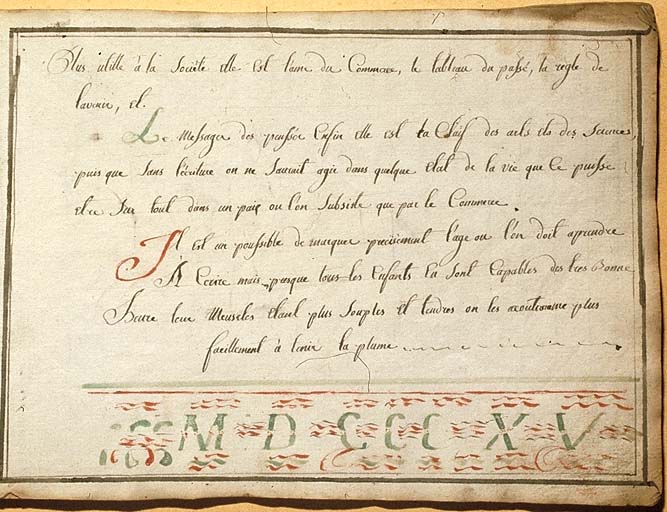 Plus utille à la Societé elle est l'ame du Commerce, le tableau du passé, la regle de
lavenir, et.
Le Messager des pensées Enfin elle est ta Clèif des arts ets des Sciences,
puis que Sans l'écriture on ne Sauroit agir dans quelque etat de la vie que Ce puisse
etre Sur tout dans un païs ou l'on Subsiste que par le Commerce.
Il est un poussible de marquer precisement l'age ou l'on doit aprendre
A Ecrire mais presque tous les Enfants En sont Capables des tres Bonne
Heure leur Meuscles etant plus Souples Et tendres on les acoutumme plus
facillement à tenir la plume
MDCCCXV